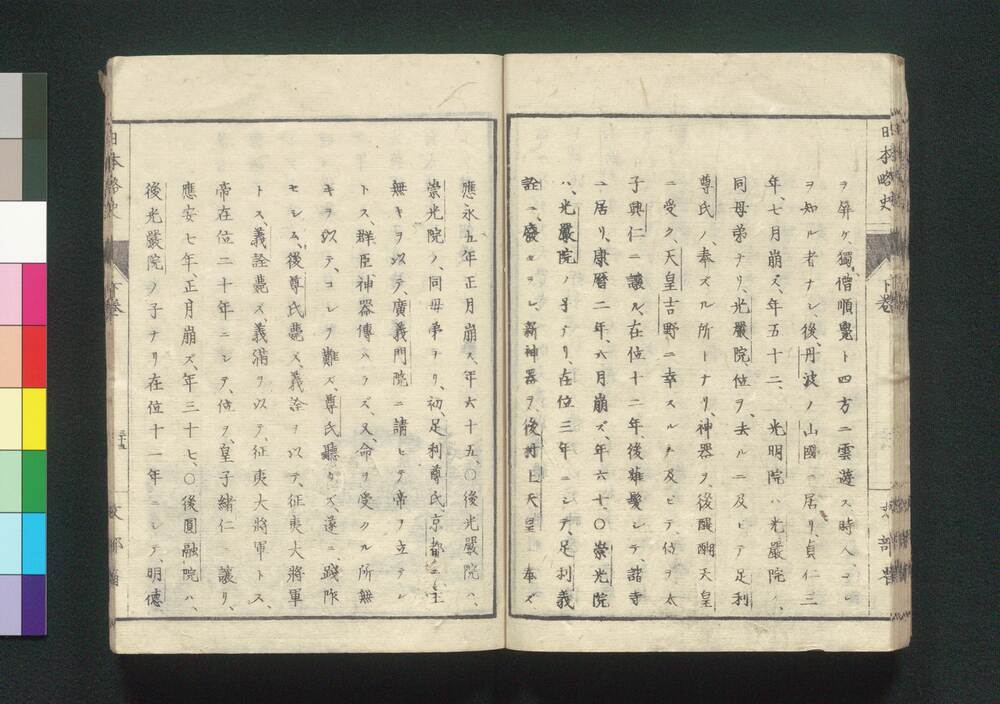 日本略史
下巻
文部省
ヲ屏ケ、獨僧順覺ト四方ニ雲遊ス、時人、コレ
ヲ知ル者ナシ、後、丹波ノ山國ニ居リ、貞仁三
年、七月崩ス、年五十二、光明院ハ光嚴院ノ、
同母弟ナリ、光嚴院、位ヲ、去ルニ及ビテ足利
尊氏ノ、奉ズル所トナリ、神器ヲ、後醍醐天皇
ニ受ク、天皇吉野ニ幸スルニ及ビテ、位ヲ太
子興仁ニ讓ル、在位十二年、後薙髮シテ、諸寺
ニ居リ、康暦二年、六月崩ズ、年六十、〇崇光院
ハ、光嚴院ノ子ナリ、在位三年ニシテ、足利義
詮ニ、廢セラレ、新神器ヲ、後村上天皇ニ奉ズ
應永五年正月崩ズ、年六十五、〇後光嚴院ハ、
崇光院ノ、同母弟ナリ、初、足利尊氏京都ニ、主
無キヲ以テ、廣義門院ニ請ヒテ帝ヲ立テン
トス、群臣神器傳ハラズ、又、命ヲ受クル所無
キヲ以テ、コレヲ難ズ、尊氏聽カズ、遂ニ、踐阼
セシム、後尊氏薨ズ、義詮ヲ以テ、征夷大將軍
トス、義詮薨ズ、義滿ヲ以テ、征夷大將軍トス、
帝在位二十年ニシテ、位ヲ、皇子緒仁ニ讓リ、
應安七年、正月崩ズ、年三十七、〇後圓融院ハ、
後光嚴院ノ子ナリ在位十一年ニシテ、明德
日本略史
下巻
文部省